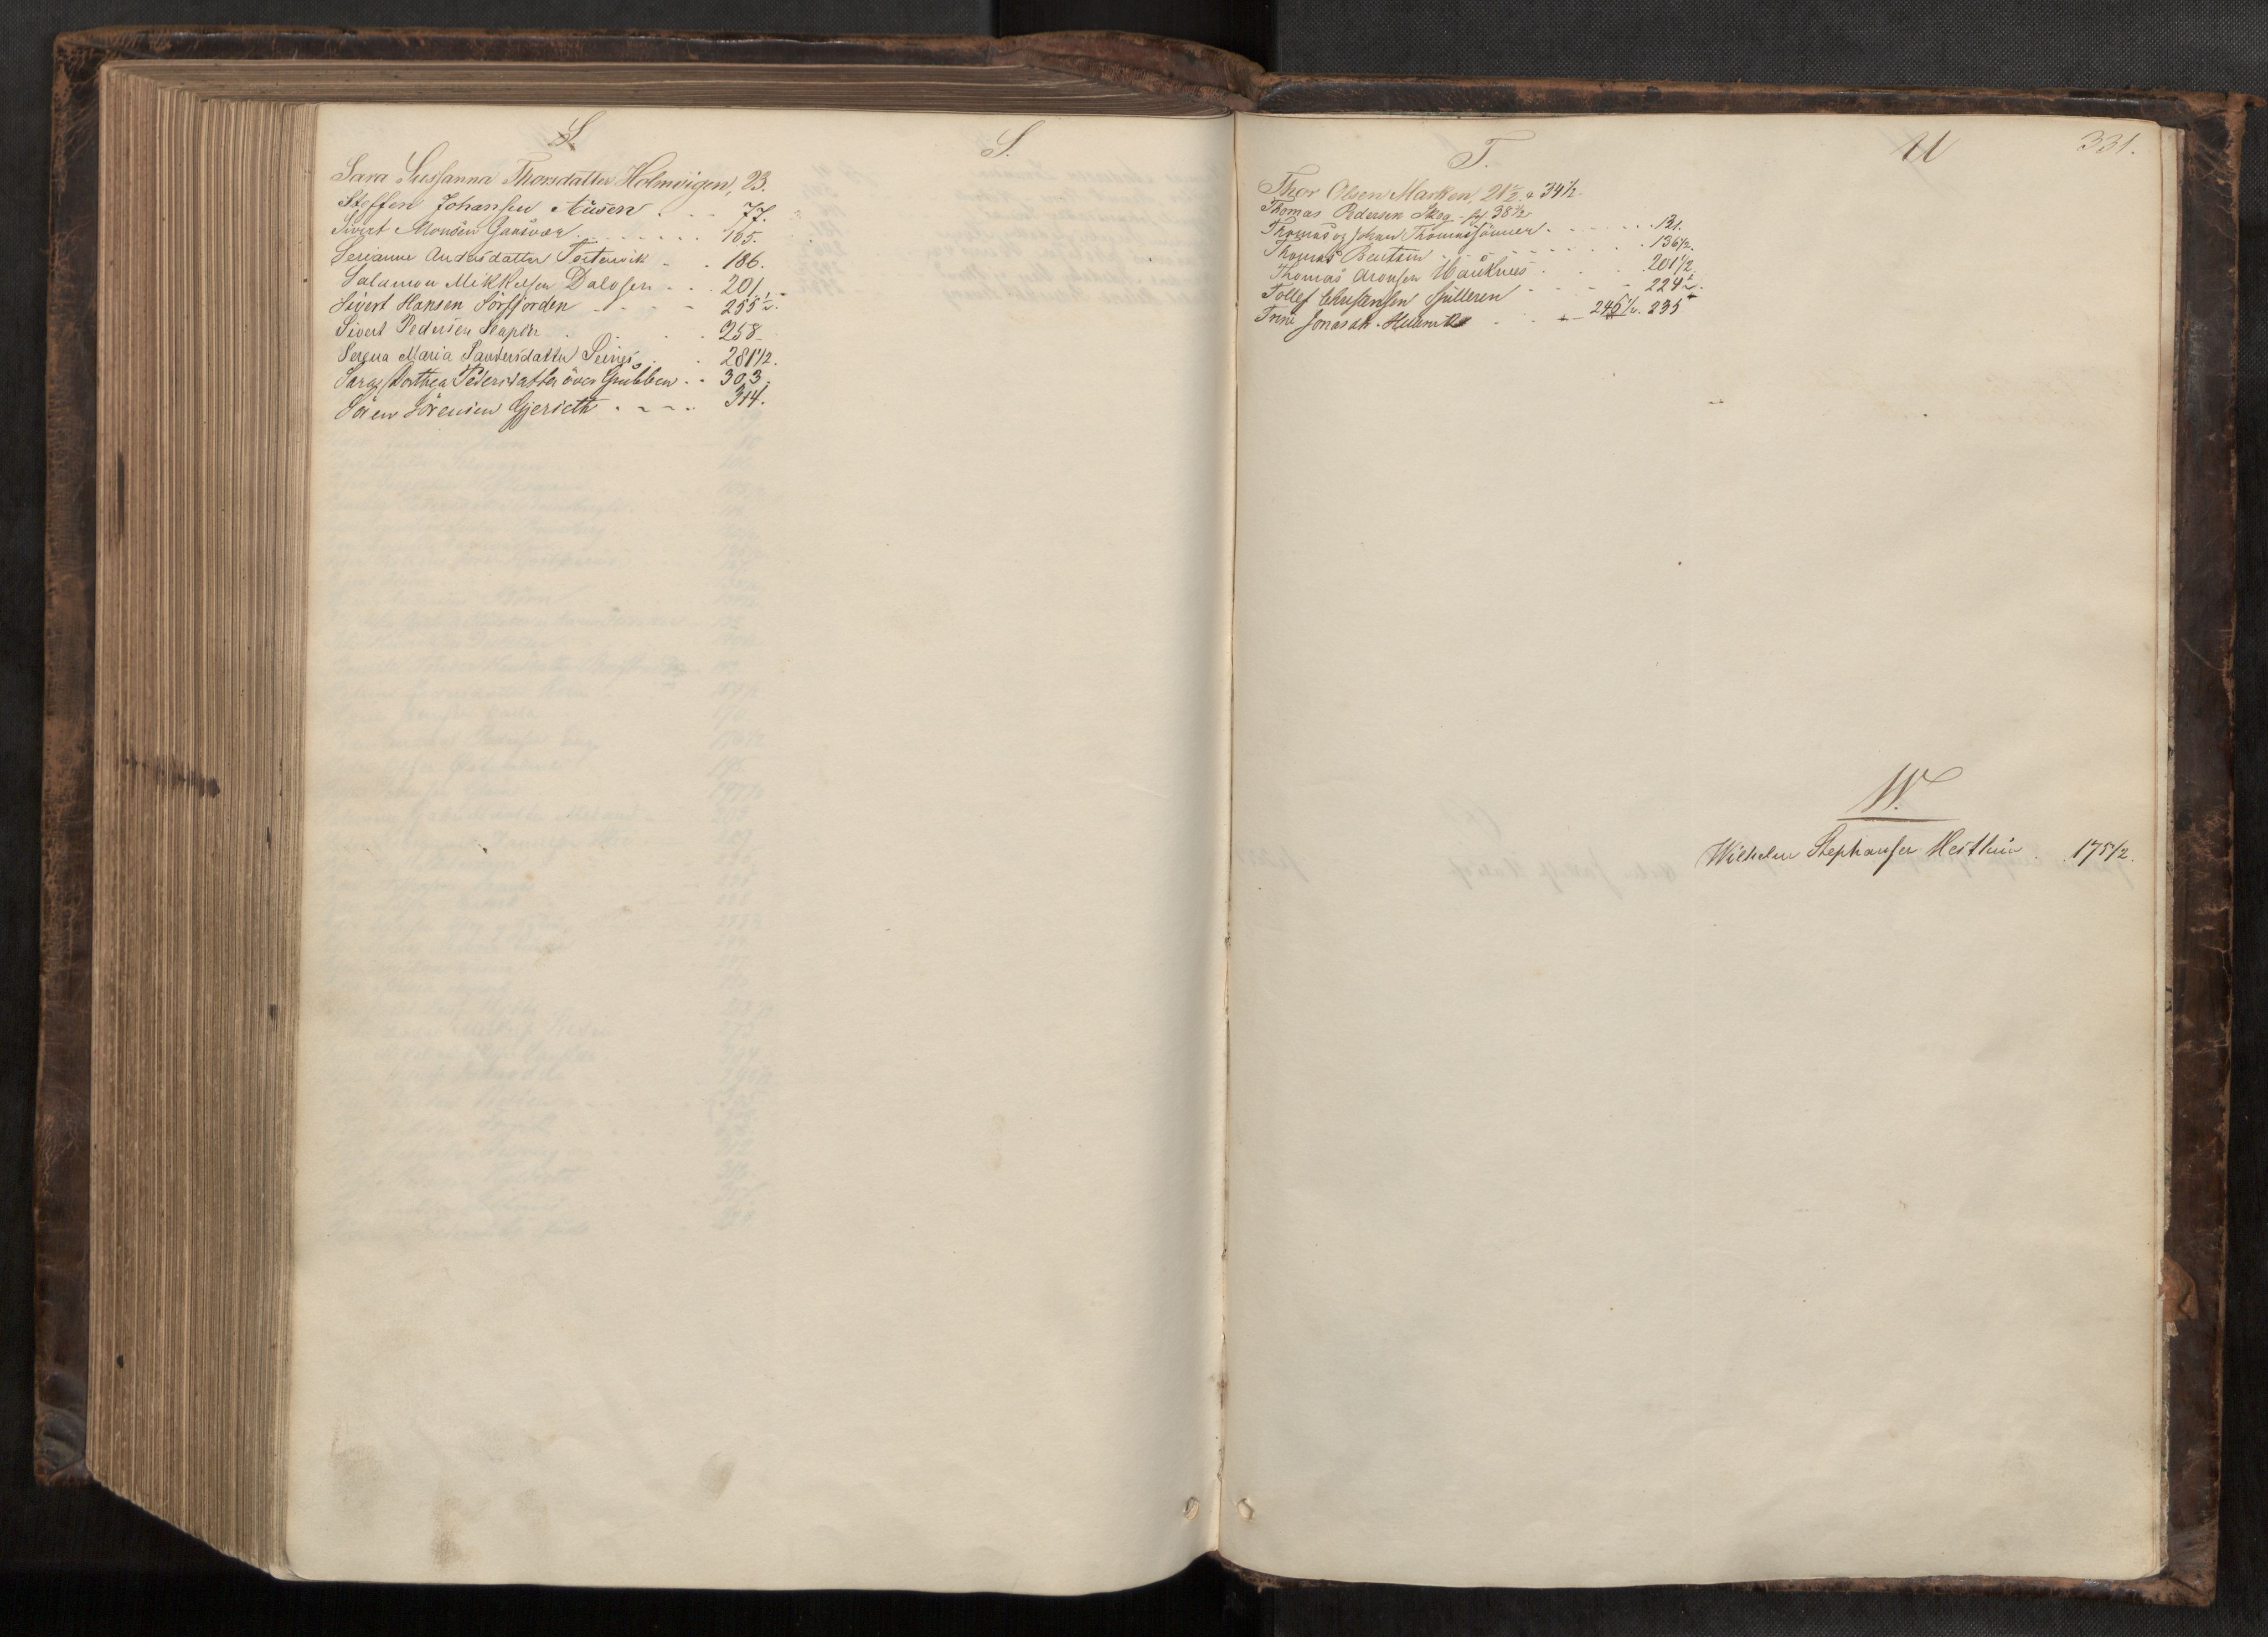 S.
Sara Sussanna Thorsdatter Holmvigen, 23.
Steffen Johansen Aüsen . . . 77.
Sivert Monsen Gaasvær . . . . . . . 165.
Serianne Andersdatter Testervik . . 186.
Salamon Mikkelsen Dalosen . . . 201.
Sivert Hansen Sörfjorden . . . 255½.
Sivert Pedersen . . . 258
Serena Maria Sandersdatter Seines . . 281½.
Sara Dorthea Pedersdatter över Grubben . . 303.
Sören Sörensen Gjerseth . . . . 314.
S.
T.
Thor Olsen Marken, 21½ & 34½.
Thomas Pedersen Skog - fol. 38½
Thomas og Johan Thomassönner . . . . . . . 131.
Thomas Bentsen . . . . . . . . 136½.
Thomas Aronsen . . . . 201½.
Tollef Christensen . . . . 224½.
Trine Jonasdt. . . . 246½. 235
U
331.
W.
Wilhelm Stephansen Hesthün . . 175½.